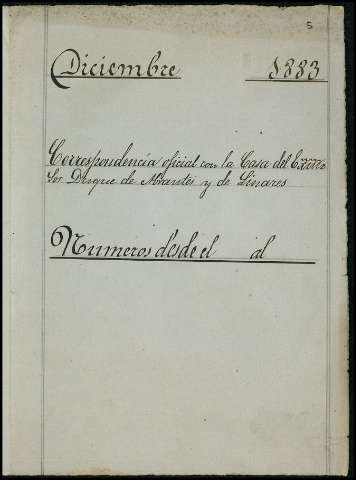 5
Diciembre 1883
Correspondencia oficial con la Casa del Excmo
Sor Duque de Abrantes y de Linares
Numeros desde el al